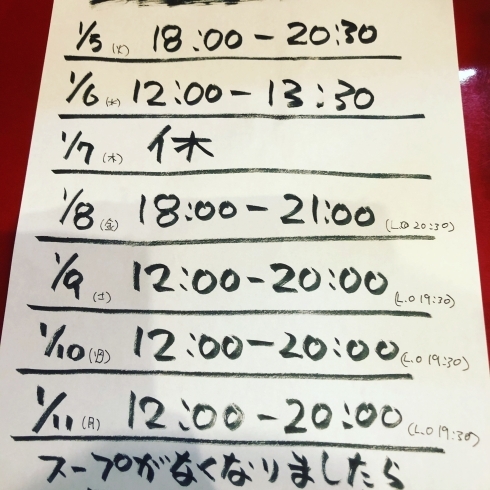 1/5 (火) 18:00-20:30
1/6 (水) 12:00-13:30
1/7 (木) 休
1/8 (金) 18:00-21:00 (L.O 20:30)
1/9 (土) 12:00-20:00 (L.O 19:30)
1/10 (日) 12:00-20:00 (L.O 19:30)
1/11 (月) 12:00-20:00 (L.O 19:30)
スープがなくなりましたら